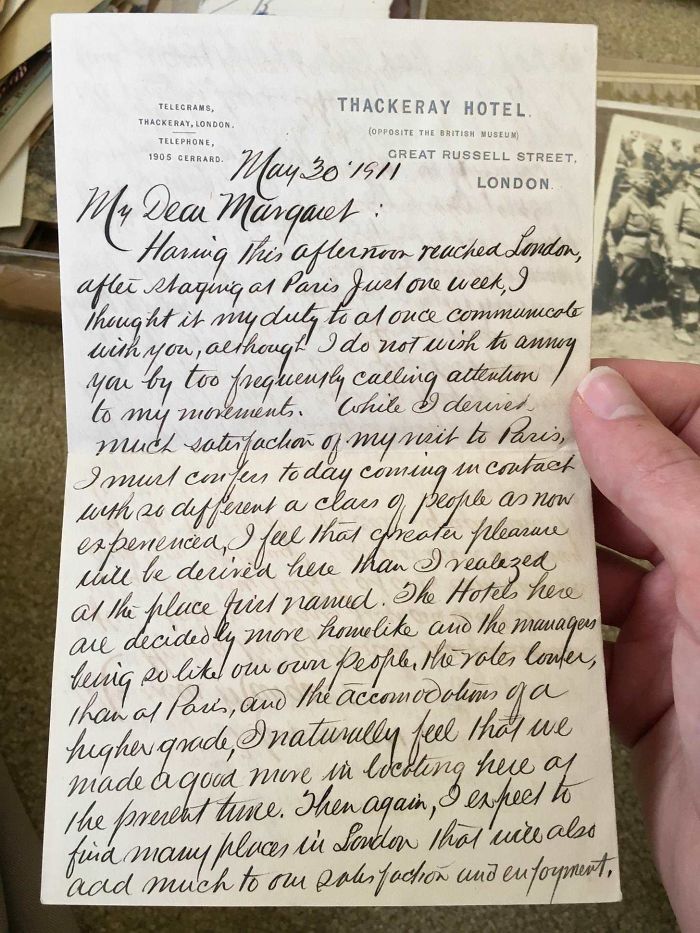 TELEGRAMS,
THACKERAY, LONDON.
TELEPHONE,
1905 GERRARD.
THACKERAY HOTEL.
(OPPOSITE THE BRITISH MUSEUM)
GREAT RUSSELL STREET,
LONDON.
May 30 1911
My Dear Margaret :
Having this afternoon reached London,
after staying at Paris Just one week, I
thought it my duty to at once communicate
with you, although I do not wish to annoy
you by too frequently calling attention
to my movements. While I derived
much satisfaction of my visit to Paris,
I must confess today coming in contact
with so different a class of people as now
experienced, I feel that greater pleasure
will be derived here than I realized
at the place first named. The Hotels here
are decidedly more homelike and the managers
being so like our own People, the rates lower,
than at Paris, and the accomodations of a
higher grade, I naturally feel that we
made a good move in locating here at
the present time. Then again, I expect to
find many places in London that will also
add much to our satisfaction and enjoyment.